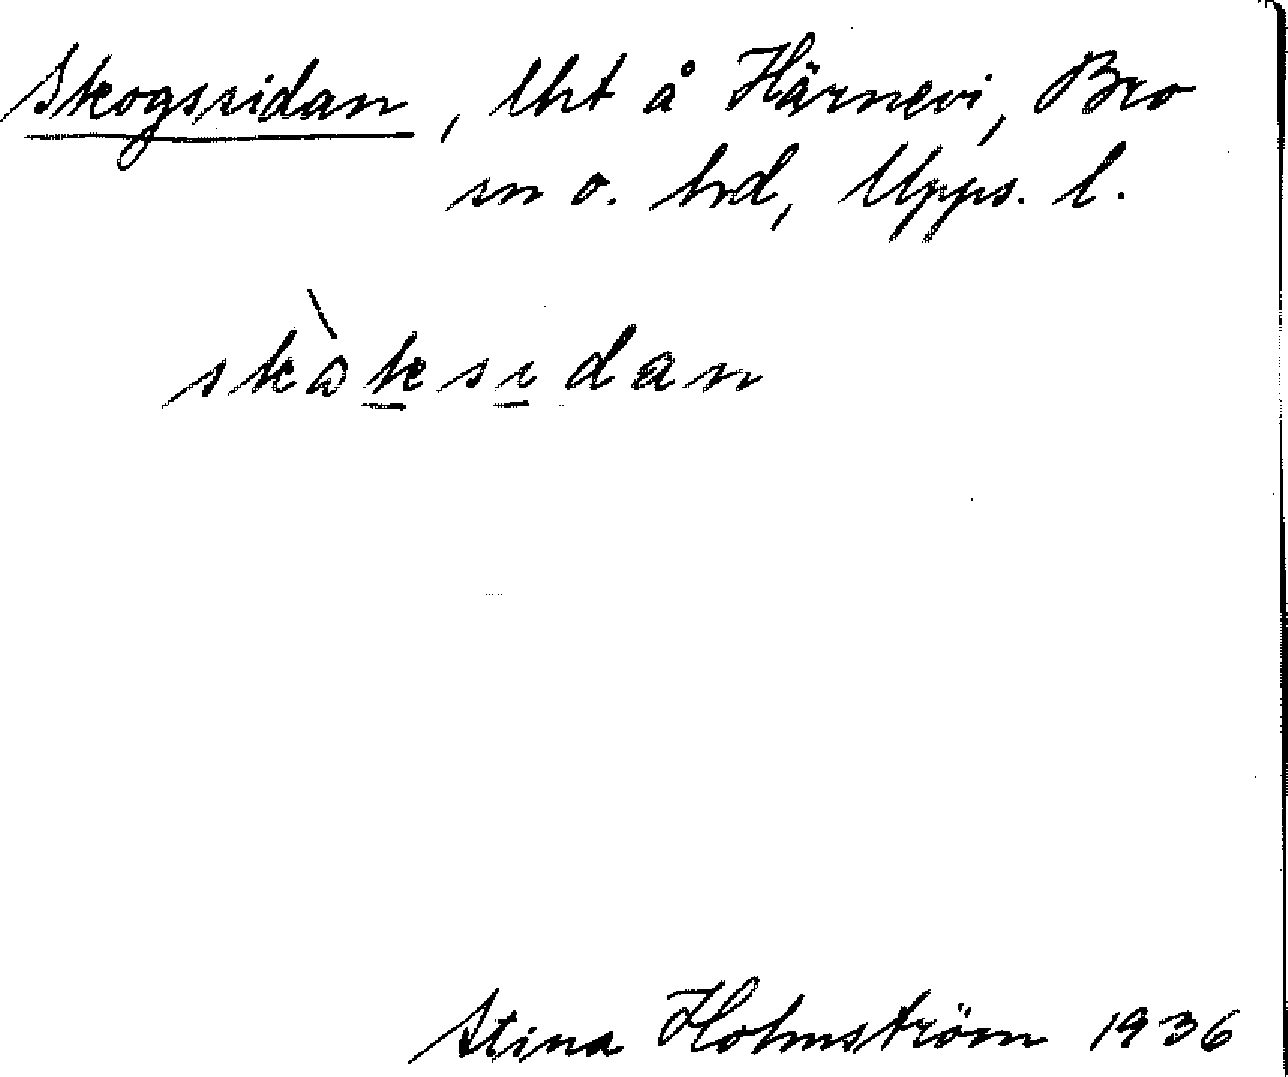 Skogssidan, lht å Härnevi, Bro
sn o. hd, Upps. l.
skòksidan
Stina Holmström 1936